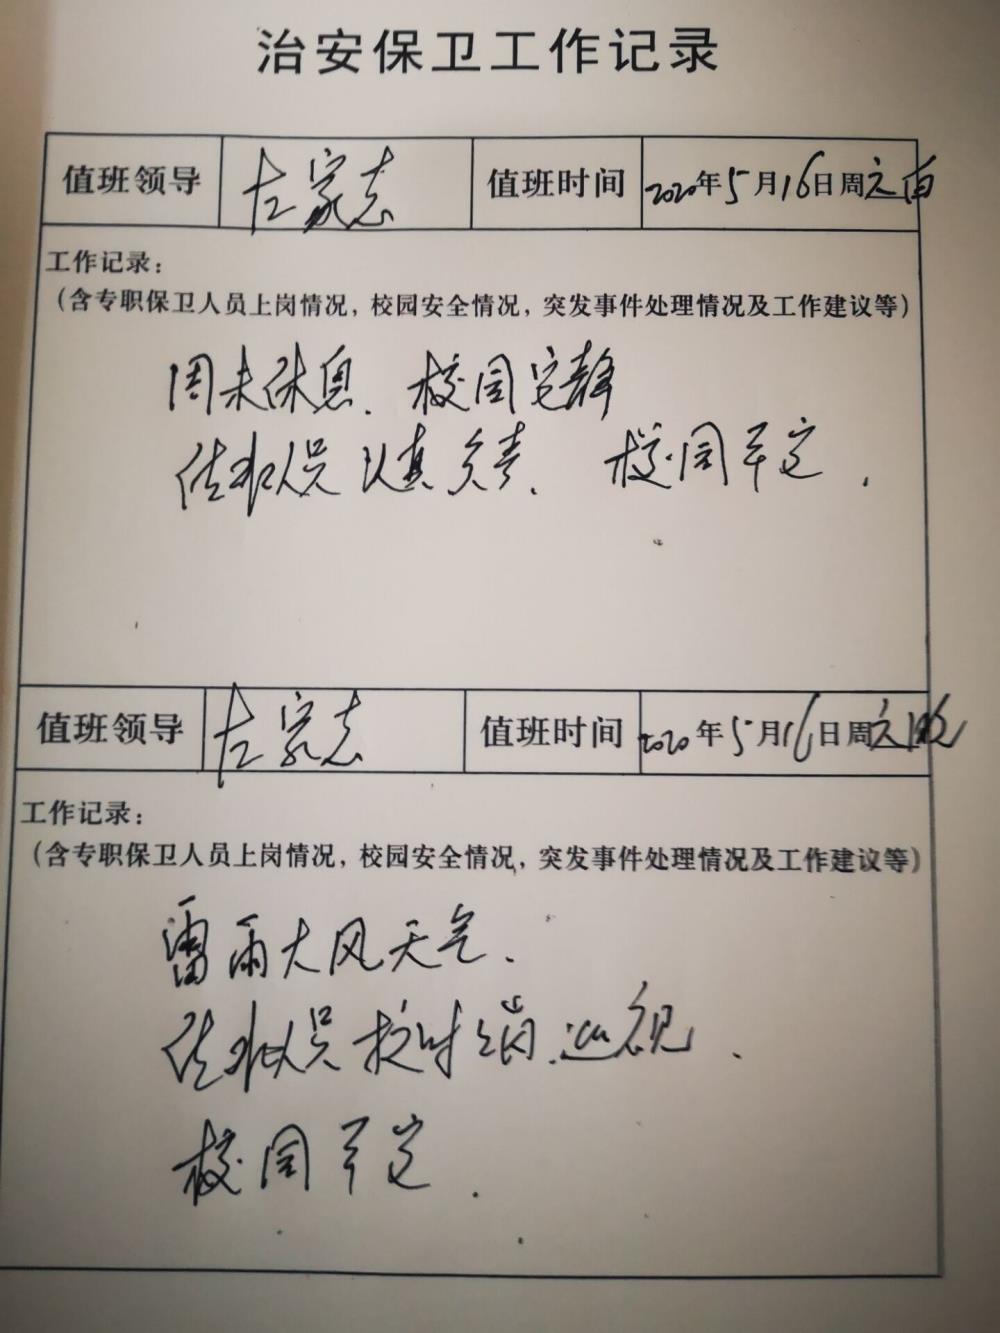 治安保卫工作记录
值班领导 左家志 值班时间 2020年5月16日周六白
工作记录：
（含专职保卫人员上岗情况，校园安全情况，突发事件处理情况及工作建议等）
周末休息．校园安静
值班人员认真负责．校园平安．
值班领导 左家志 值班时间 2020年5月16日周六晚
工作记录：
（含专职保卫人员上岗情况，校园安全情况，突发事件处理情况及工作建议等）
雷雨大风天气．
值班人员按时上岗．巡视．
校园平安．